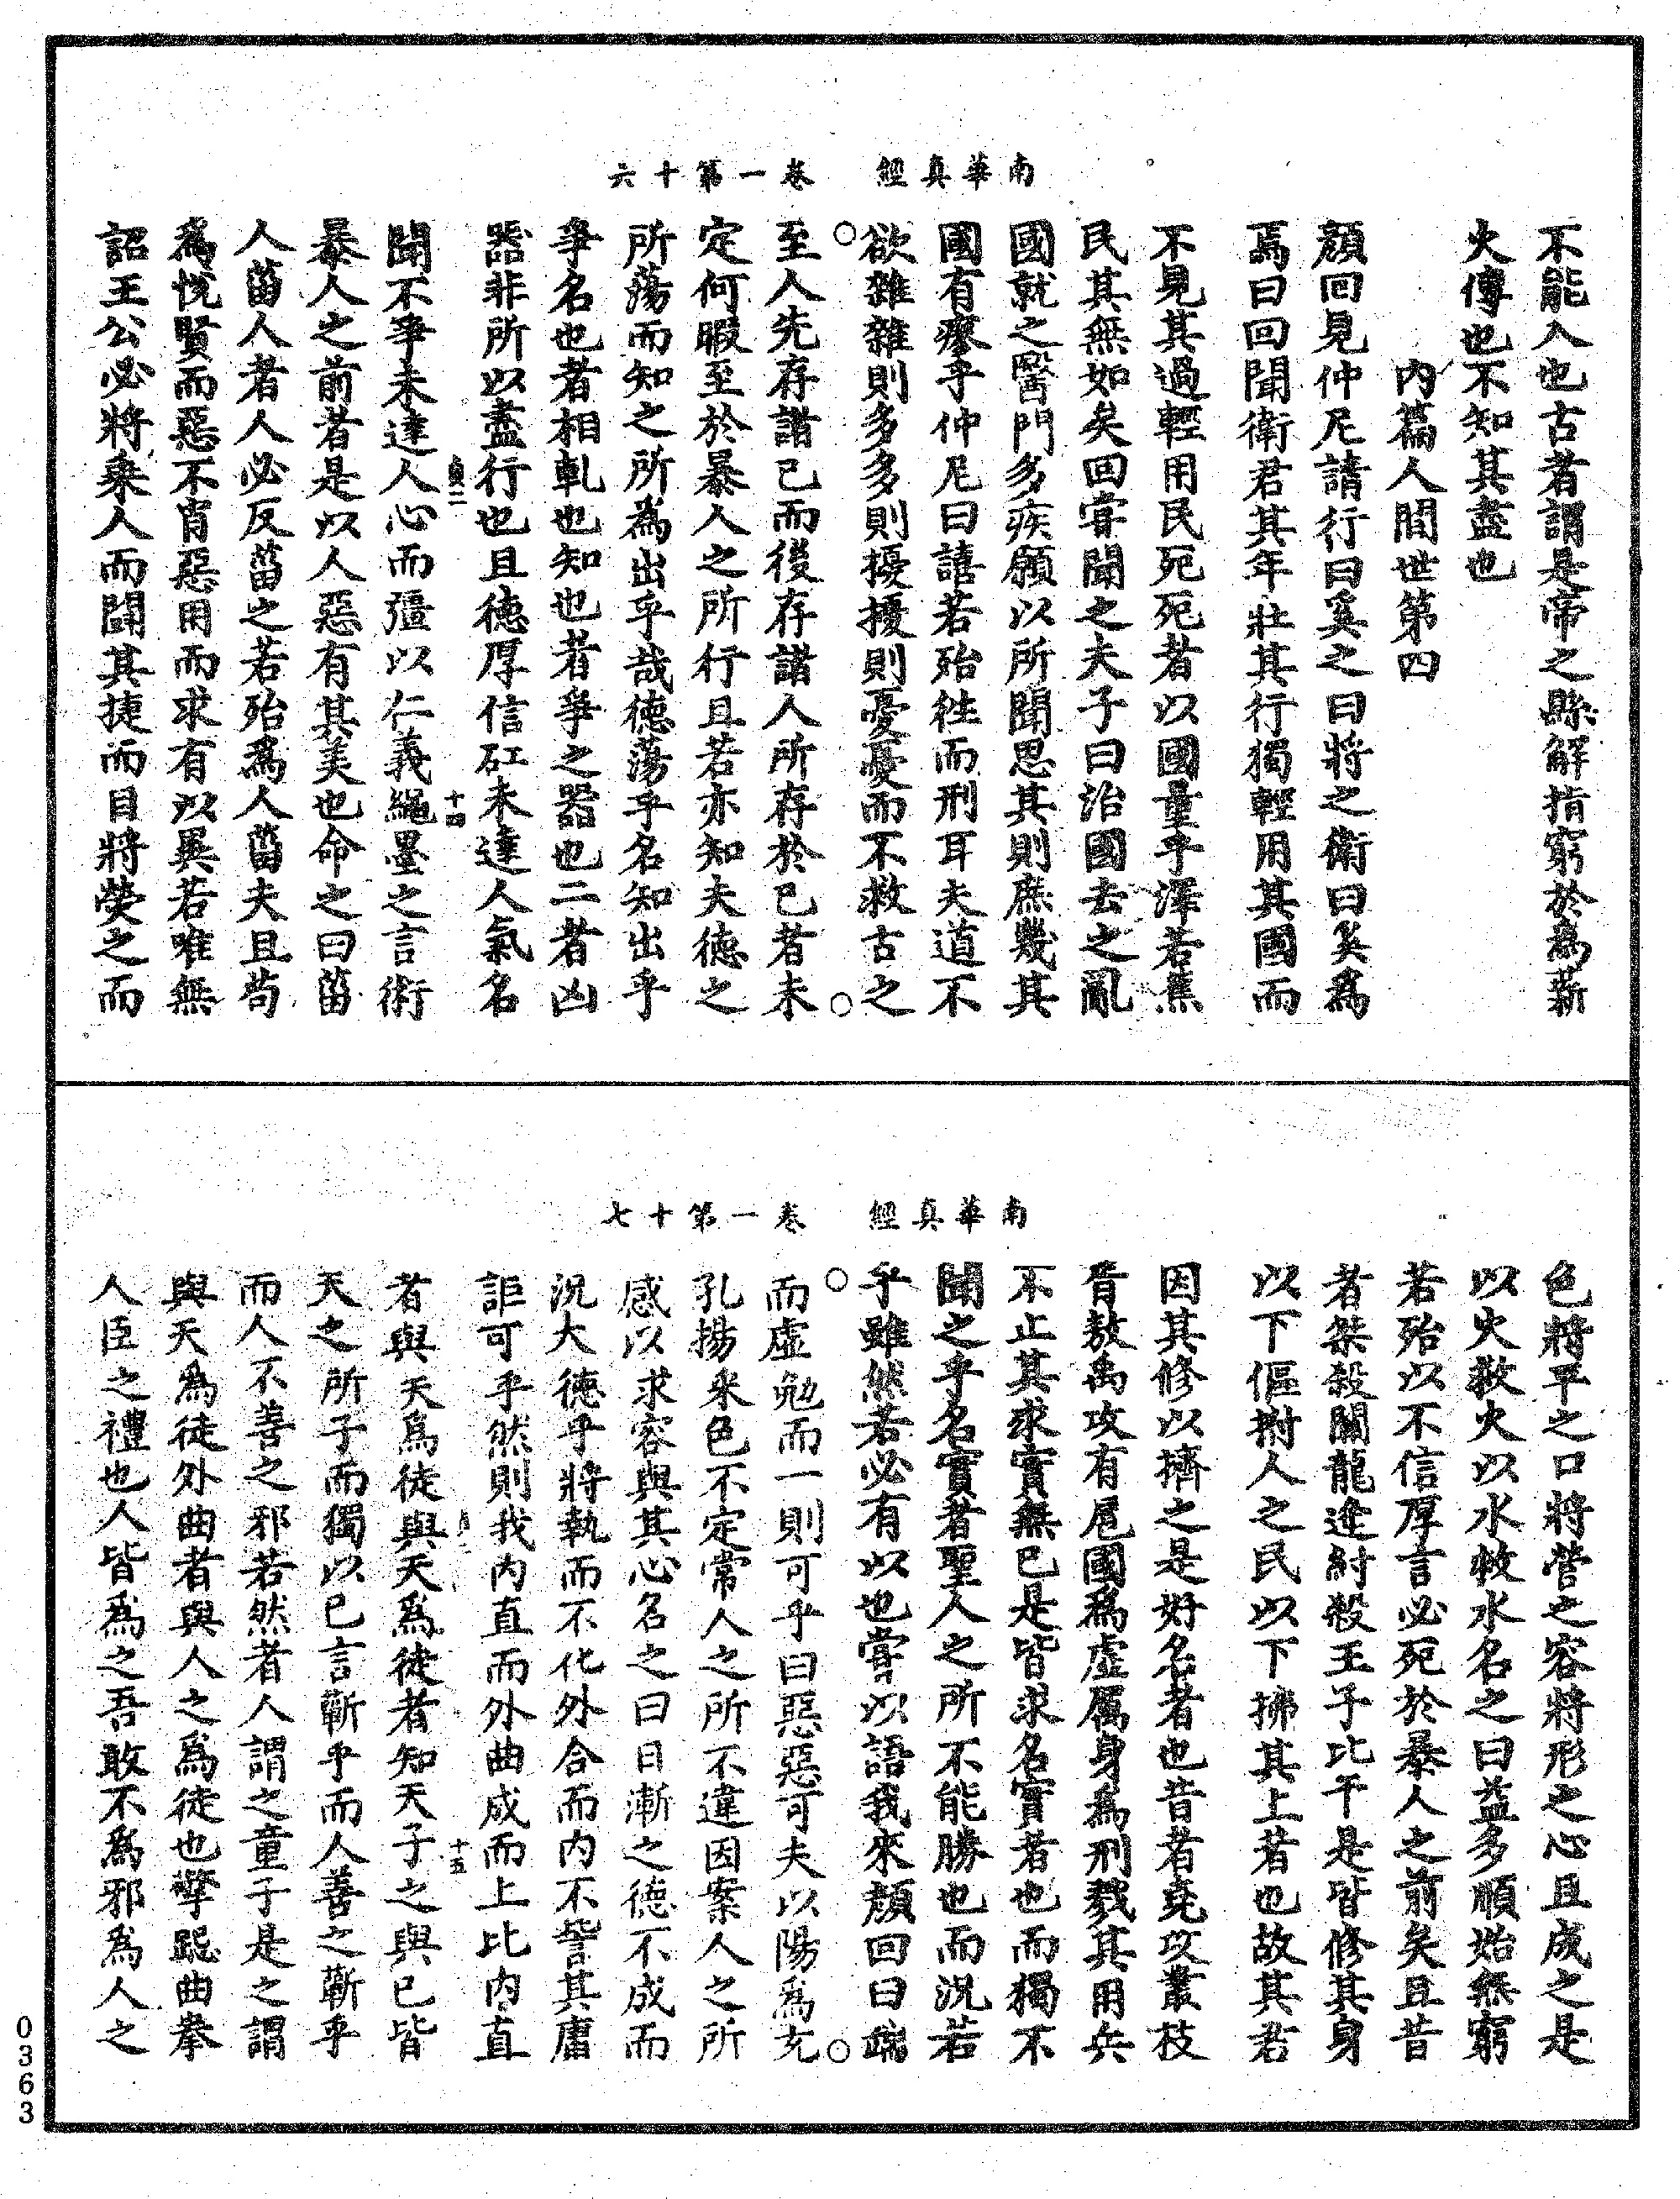 南華真經　卷一第十六
不能入也古者謂是帝之縣解指窮於為薪
火傳也不知其盡也
內篇人間世第四
顏回見仲尼請行曰奚之曰將之衛曰奚為
焉曰回聞衛君其年壯其行獨輕用其國而
不見其過輕用民死死者以國量乎澤若蕉
民其無如矣回甞聞之夫子曰治國去之亂
國就之醫門多疾願以所聞思其則庶幾其
國有瘳乎仲尼曰譆若殆往而刑耳夫道不
欲雜雜則多多則擾擾則憂憂而不救古之
至人先存諸己而後存諸人所存於己者未
定何暇至於暴人之所行且若亦知夫德之
所蕩而知之所為出乎哉德蕩乎名知出乎
爭名也者相軋也知也者爭之器也二者凶
器非所以盡行也且德厚信矼未達人氣名
聞不爭未達人心而彊以仁義繩墨之言術
貞二
十四
暴人之前者是以人惡有其美也命之曰菑
人菑人者人必反菑之若殆為人菑夫且苟
為悅賢而惡不肖惡用而求有以異若唯無
詔王公必將乘人而鬭其捷而目將熒之而
南華真經　卷一第十七
色將平之口將營之容將形之心且成之是
以火救火以水救水名之曰益多順始無窮
若殆以不信厚言必死於暴人之前矣且昔
者桀殺關龍逄紂殺王子比干是皆修其身
以下傴拊人之民以下拂其上者也故其君
因其修以擠之是好名者也昔者堯攻叢枝
胥敖禹攻有扈國為虛厲身為刑戮其用兵
不止其求實無已是皆求名實者也而獨不
聞之乎名實者聖人之所不能勝也而況若
乎雖然若必有以也嘗以語我來顏回曰端
而虛勉而一則可乎曰惡惡可夫以陽為充
孔揚采色不定常人之所不違因案人之所
感以求容與其心名之曰日漸之德不成而
況大德乎將執而不化外合而內不訾其庸
詎可乎然則我內直而外曲成而上比內直
者與天為徒與天為徒者知天子之與己皆
十五
天之所子而獨以己言蘄乎而人善之蘄乎
而人不善之邪若然者人謂之童子是之謂
與天為徒外曲者與人之為徒也擎跽曲拳
人臣之禮也人皆為之吾敢不為邪為人之
0363